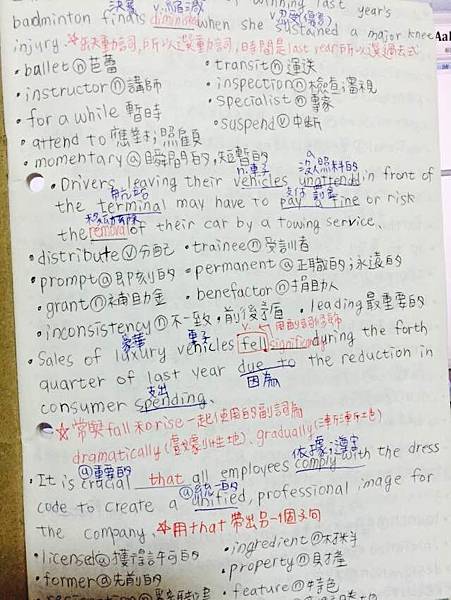 決賽 v.縮減 v.忍受(傷害)
of winning last year's
badminton finals diminished when she sustained a major knee
injury. ☆缺動詞,所以選動詞,時間是last year所以選過去式
•ballet ⓝ芭蕾 •transit ⓝ運送
•instructor ⓝ講師 •inspection ⓝ檢查;審視
•for a while 暫時 •specialist ⓝ專家
•attend to 應對;照顧 •suspend ⓥ中斷
•momentary ⓐ瞬間的,短暫的
n.車子 沒照料的
•Drivers leaving their vehicles unattended in front of
航站 支付 罰金
the terminal may have to pay a fine or risk
移動
the removal of their car by a towing service.
•distribute ⓥ分配 •trainee ⓝ受訓者
•prompt ⓐ即刻的 •permanent ⓐ正職的;永遠的
•grant ⓝ補助金 •benefactor ⓝ捐助人
•inconsistency ⓝ不一致,前後矛盾 •leading 最重要的
豪華 車子 v. 用副詞修飾
•Sales of luxury vehicles fell significantly during the forth
quarter of last year due to the reduction in
支出 因為
consumer spending.
☆常與fall和rise一起使用的副詞為
dramatically(戲劇性地)、gradually(漸漸地)
ⓐ重要的 依據,遵守
•It is crucial that all employees comply with the dress
ⓐ統一的
code to create a unified, professional image for
the company. ☆用that帶出另一個子句
•licensed ⓐ獲得許可的 •ingredient ⓝ材料
•former ⓐ先前的 •property ⓝ財產
•feature ⓝ特色